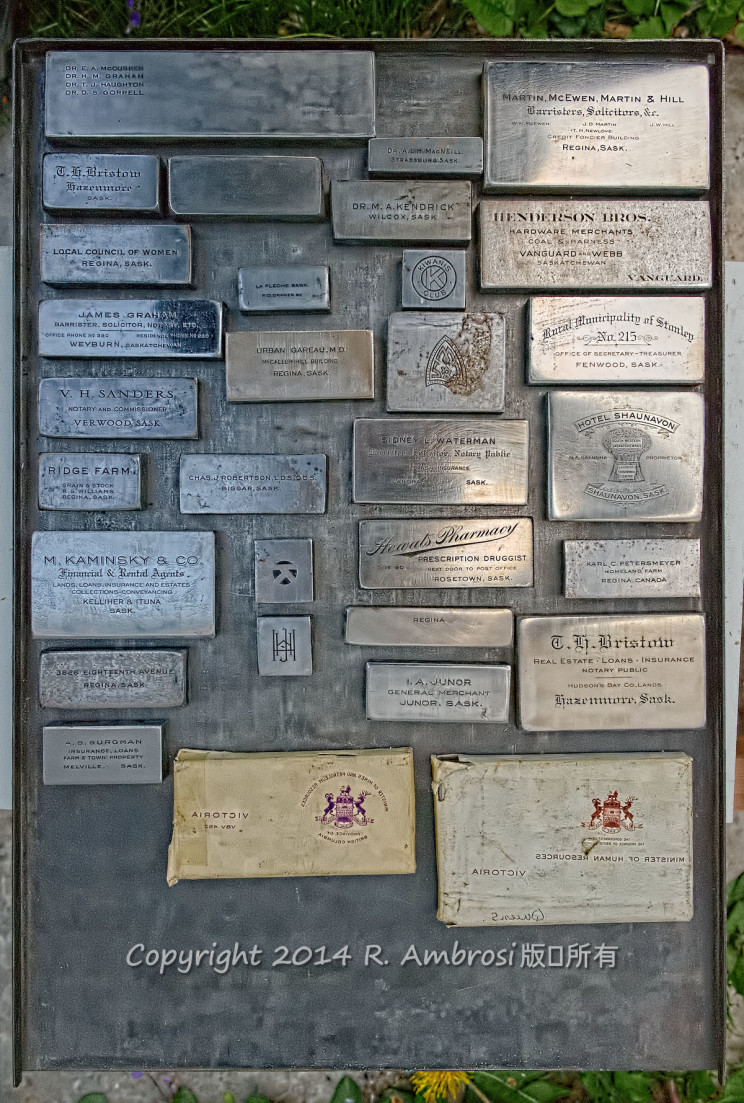 DR. E. A. McCUSKER
DR. H. M. GRAHAM
DR. T. J. HAUGHTON
DR. D. S. GORRELL
MARTIN, McEWEN, MARTIN & HILL
Barristers, Solicitors, &c.
W.K. McEWEN J.D. MARTIN J.W. HILL
T. H. NEWLOVE
CREDIT FONCIER BUILDING
REGINA, SASK.
DR. A. L. H. MacNEILL
STRASSBURG, SASK.
T. H. Bristow
Hazenmore
SASK.
DR. M. A. KENDRICK
WILCOX, SASK.
HENDERSON BROS.
HARDWARE MERCHANTS
COAL & HARNESS
VANGUARD AND WEBB
SASKATCHEWAN
VANGUARD.
LOCAL COUNCIL OF WOMEN
REGINA, SASK.
KIWANIS
K
CLUB
LA FLECHE SASK.
JAMES GRAHAM
BARRISTER, SOLICITOR, NOTARY, ETC.
OFFICE PHONE NO 390 RESIDENCE PHONE NO 289
WEYBURN, SASKATCHEWAN
URBAN GAREAU, M.D.
McCALLUM-HILL BUILDING
REGINA, SASK.
Rural Municipality of Stanley
No. 215
OFFICE OF SECRETARY-TREASURER
FENWOOD, SASK.
V. H. SANDERS
NOTARY AND COMMISSIONER
VERWOOD, SASK.
HOTEL SHAUNAVON
PROPRIETOR
SHAUNAVON, SASK.
SIDNEY L. WATERMAN
Notary Public
INSURANCE
SASK.
RIDGE FARM
GRAIN & STOCK
R. S. WILLIAMS
REGINA, SASK.
CHAS. J. ROBERTSON, L.D.S., D.D.S.
BIGGAR, SASK.
Hewats Pharmacy
PRESCRIPTION DRUGGIST
NEXT DOOR TO POST OFFICE
ROSETOWN, SASK.
M. KAMINSKY & CO.
Financial & Rental Agents.
LANDS, LOANS, INSURANCE AND ESTATES
COLLECTIONS-CONVEYANCING
KELLIHER & ITUNA
SASK.
KARL C. PETERSMEYER
HOMELAND FARM
REGINA, CANADA
REGINA
T. H. Bristow
REAL ESTATE · LOANS · INSURANCE
NOTARY PUBLIC
HUDSON'S BAY CO. LANDS
Hazenmore, Sask.
3826 EIGHTEENTH AVENUE
REGINA, SASK.
I. A. JUNOR
GENERAL MERCHANT
JUNOR, SASK.
A. B. BURGMAN
INSURANCE, LOANS
FARM & TOWN PROPERTY
MELVILLE, SASK.
MINISTER OF MINES AND PETROLEUM RESOURCES
PROVINCE OF
BRITISH COLUMBIA
VICTORIA
V8V 4R2
THE GOVERNMENT OF
THE PROVINCE OF BRITISH COLUMBIA
MINISTER OF HUMAN RESOURCES
VICTORIA
Queens
Copyright 2014 R. Ambrosi版□所有